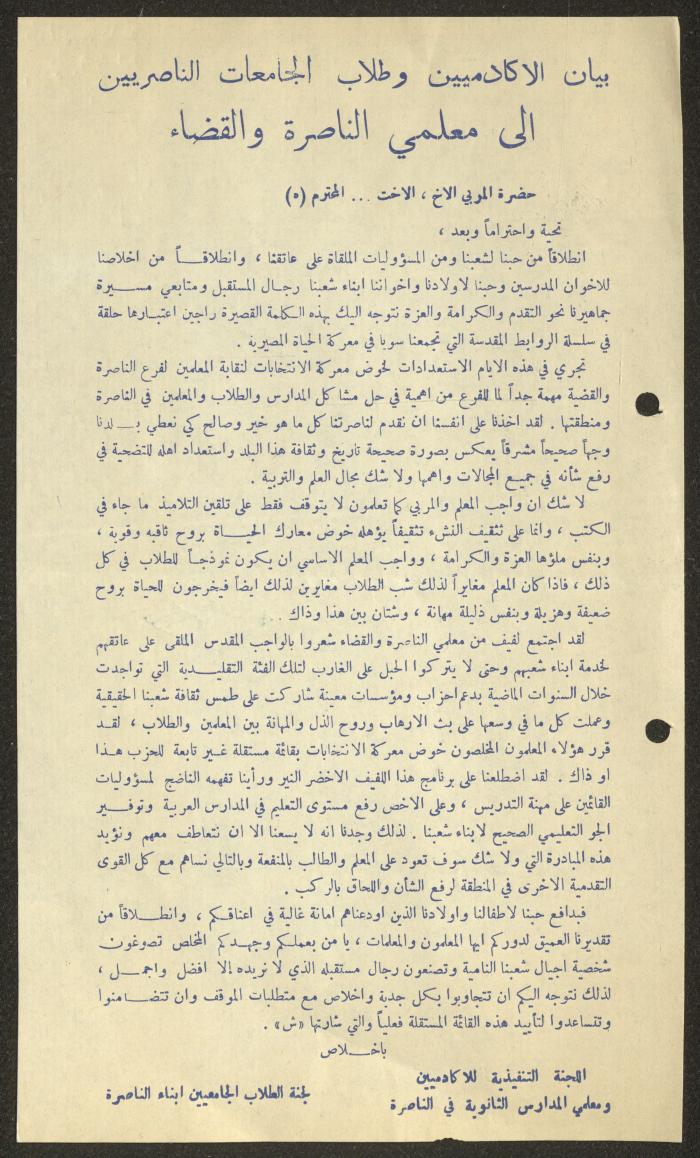 بيان الاكادميين وطلاب الجامعات الناصريين
الى معلمي الناصرة والقضاء
حضرة المربي الاخ ، الاخت ... المحترم (ه)
تحية واحتراماً وبعد ،
انطلاقاً من حبنا لشعبنا ومن المسؤوليات الملقاة على عاتقنا ، وانطلاقـــاً من اخلاصنا
للاخوان المدرسين وحبنا لاولادنا واخواننا ابناء شعبنا رجـال المستقبل ومتابعي مسـيرة
جماهيرنا نحو التقدم والكرامة والعزة نتوجه اليك بهذه الكلمة القصيرة راجين اعتبـارها حلقة
في سلسلة الروابط المقدسة التي تجمعنا سويا في معركة الحياة المصيرية .
تجري في هذه الايام الاستعدادات لخوض معركة الانتخابات لنقابة المعلمين لفرع الناصرة
والقضية مهمة جداً لما للفرع من اهمية في حل مشاكل المدارس والطلاب والمعلمين في الناصرة
ومنطقتها . لقد اخذنا على انفسنا ان نقدم لناصرتنا كل ما هو خير وصالح كي نعطي بـلدنا
وجهاً صحيحاً مشرقاً يعكس بصورة صحيحة تاريخ وثقافة هذا البلد واستعداد اهله للتضحية في
رفع شأنه في جميـع المجالات واهمها ولا شك مجال العلم والتربية .
لا شك ان واجب المعلم والمربي كما تعلمون لا يتوقف فقط على تلقين التلاميذ ما جاء في
الكتب ، وانما على تثقيف النشء تثقيفاً يؤهله خوض معارك الحيـــاة بروح ثاقبه وقوية ،
وبنفس ملؤها العزة والكرامة ، وواجب المعلم الاساسي ان يكون نموذجـاً للطلاب في كل
ذلك ، فاذا كان المعلم مغايراً لذلك شب الطلاب مغايرين لذلك ايضاً فيخرجون للحياة بروح
ضعيفة وهزيلة وبنفس ذليلة مهانة ، وشتان بين هذا وذاك ..
لقد اجتمع لفيف من معلمي الناصرة والقضاء شعروا بالواجب المقدس الملقى على عاتقهم
لخدمة ابناء شعبهم وحتى لا يتركوا الحبل على الغارب لتلك الفئة التقليـدية التي تواجدت
خلال السنوات الماضية بدعم احزاب ومؤسسات معينة شاركت على طمس ثقافة شعبنا الحقيقية
وعملت كل ما في وسعها على بث الارهاب وروح الذل والمهانة بين المعلمين والطلاب ، لقـد
قرر هؤلاء المعلمون المخلصون خوض معركة الانتخابات بقائمة مستقلة غـير تابعة للحزب هـذا
او ذاك . لقد اضطلعنا على برنامج هذا اللفيف الاخضر النير ورأينا تفهمه الناضج لمسؤوليات
القائمين على مهنة التدريس ، وعلى الاخص رفع مستوى التعليم في المدارس العربية وتوفـير
الجو التعليمي الصحيح لابناء شعبنا . لذلك وجدنا انه لا يسعنا الا ان نتعاطف معهم ونؤيد
هذه المبادرة التي ولا شك سوف تعود على المعلم والطالب بالمنفعة وبالتالي نساهم مع كل القوى
التقدمية الاخرى في المنطقة لرفع الشأن واللحاق بالركب .
فبدافع حبنا لاطفالنا واولادنا الذين اودعناهم امانة غالية في اعناقكم ، وانطـلاقاً من
تقديرنا العميق لدوركم ايها المعلمون والمعلمات ، يا من بعملكم وجهـدكم المخلص تصوغون
شخصية اجيال شعبنا النامية وتصنعون رجال مستقبله الذي لا نريده إلا افضل واجمـل ،
لذلك نتوجه اليكم ان تتجاوبوا بكل جدية واخلاص مع متطلبات الموقف وان تتضـامنوا
وتتساعدوا لتأييد هذه القائمة المستقلة فعلياً والتي شارتها «ش» .
باخـلاص
اللجنة التنفيذية للاكادميين
ومعلمي المدارس الثانوية في الناصرة
لجنة الطلاب الجامعيين ابناء الناصرة